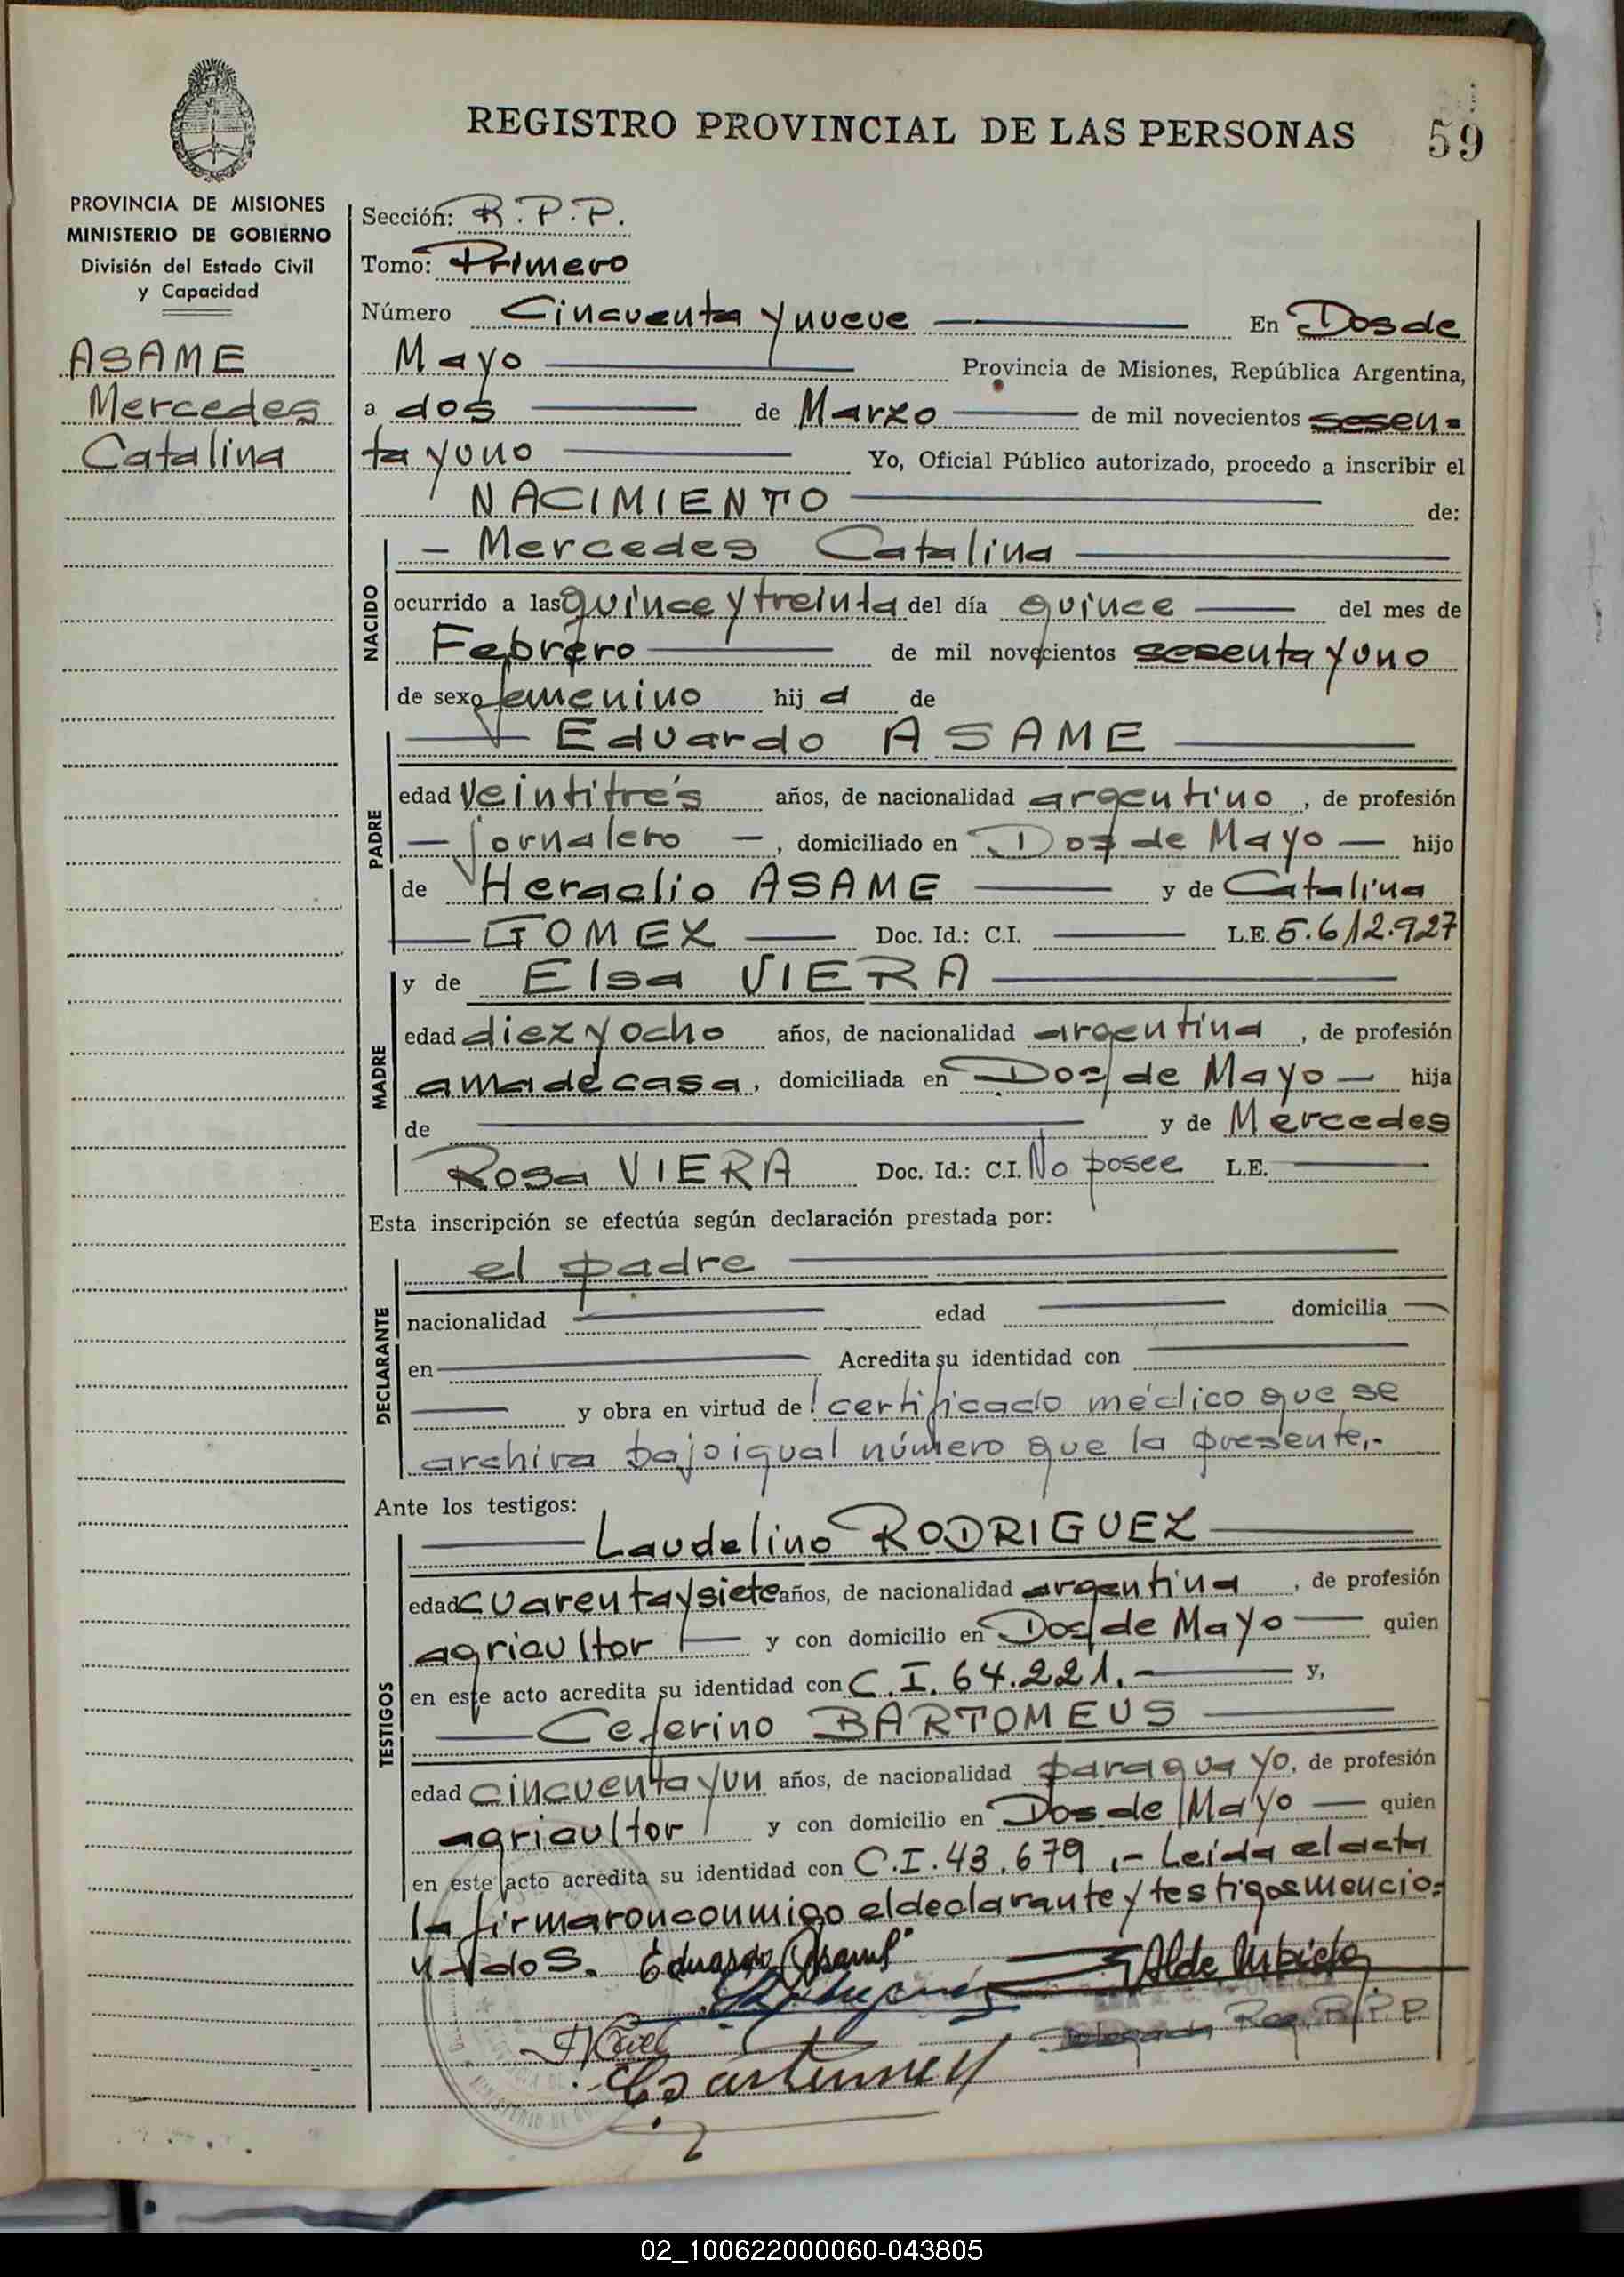 REGISTRO PROVINCIAL DE LAS PERSONAS 59
PROVINCIA DE MISIONES
MINISTERIO DE GOBIERNO
División del Estado Civil
y Capacidad
ASAME
Mercedes
Catalina
Sección: R.P.P.
Tomo: Primero
Número Cincuenta y nueve En Dos de
Mayo Provincia de Misiones, República Argentina,
a dos de Marzo de mil novecientos sesen-
ta y uno Yo, Oficial Público autorizado, procedo a inscribir el
NACIMIENTO de:
NACIDO
- Mercedes Catalina
ocurrido a las quince y treinta del día quince del mes de
Febrero de mil novecientos sesenta y uno
de sexo femenino hij a de
PADRE
Eduardo ASAME
edad veintitrés años, de nacionalidad argentino, de profesión
- jornalero -, domiciliado en Dos de Mayo - hijo
de Heraclio ASAME y de Catalina
GOMEZ Doc. Id.: C.I. L.E. 5.612.927
MADRE
y de Elsa VIERA
edad diez y ocho años, de nacionalidad argentina, de profesión
ama de casa, domiciliada en Dos de Mayo - hija
de y de Mercedes
Rosa VIERA Doc. Id.: C.I. No posee L.E.
Esta inscripción se efectúa según declaración prestada por:
DECLARANTE
el padre
nacionalidad edad domicilia
en Acredita su identidad con
y obra en virtud del certificado médico que se
archiva bajo igual número que la presente.-
Ante los testigos:
TESTIGOS
Laudelino RODRIGUEZ
edad cuarenta y siete años, de nacionalidad argentina, de profesión
agricultor y con domicilio en Dos de Mayo quien
en este acto acredita su identidad con C.I. 64.221.- y,
Ceferino BARTOMEUS
edad cincuenta y un años, de nacionalidad paraguayo, de profesión
agricultor y con domicilio en Dos de Mayo - quien
en este acto acredita su identidad con C.I. 43.679.- Leída el acta
la firmaron conmigo el declarante y testigos mencio-
nados. Eduardo Asame
Delegada Reg. R.P.P.
02_100622000060-043805